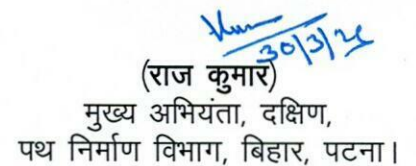 30/3/26
(राज कुमार)
मुख्य अभियंता, दक्षिण,
पथ निर्माण विभाग, बिहार, पटना।